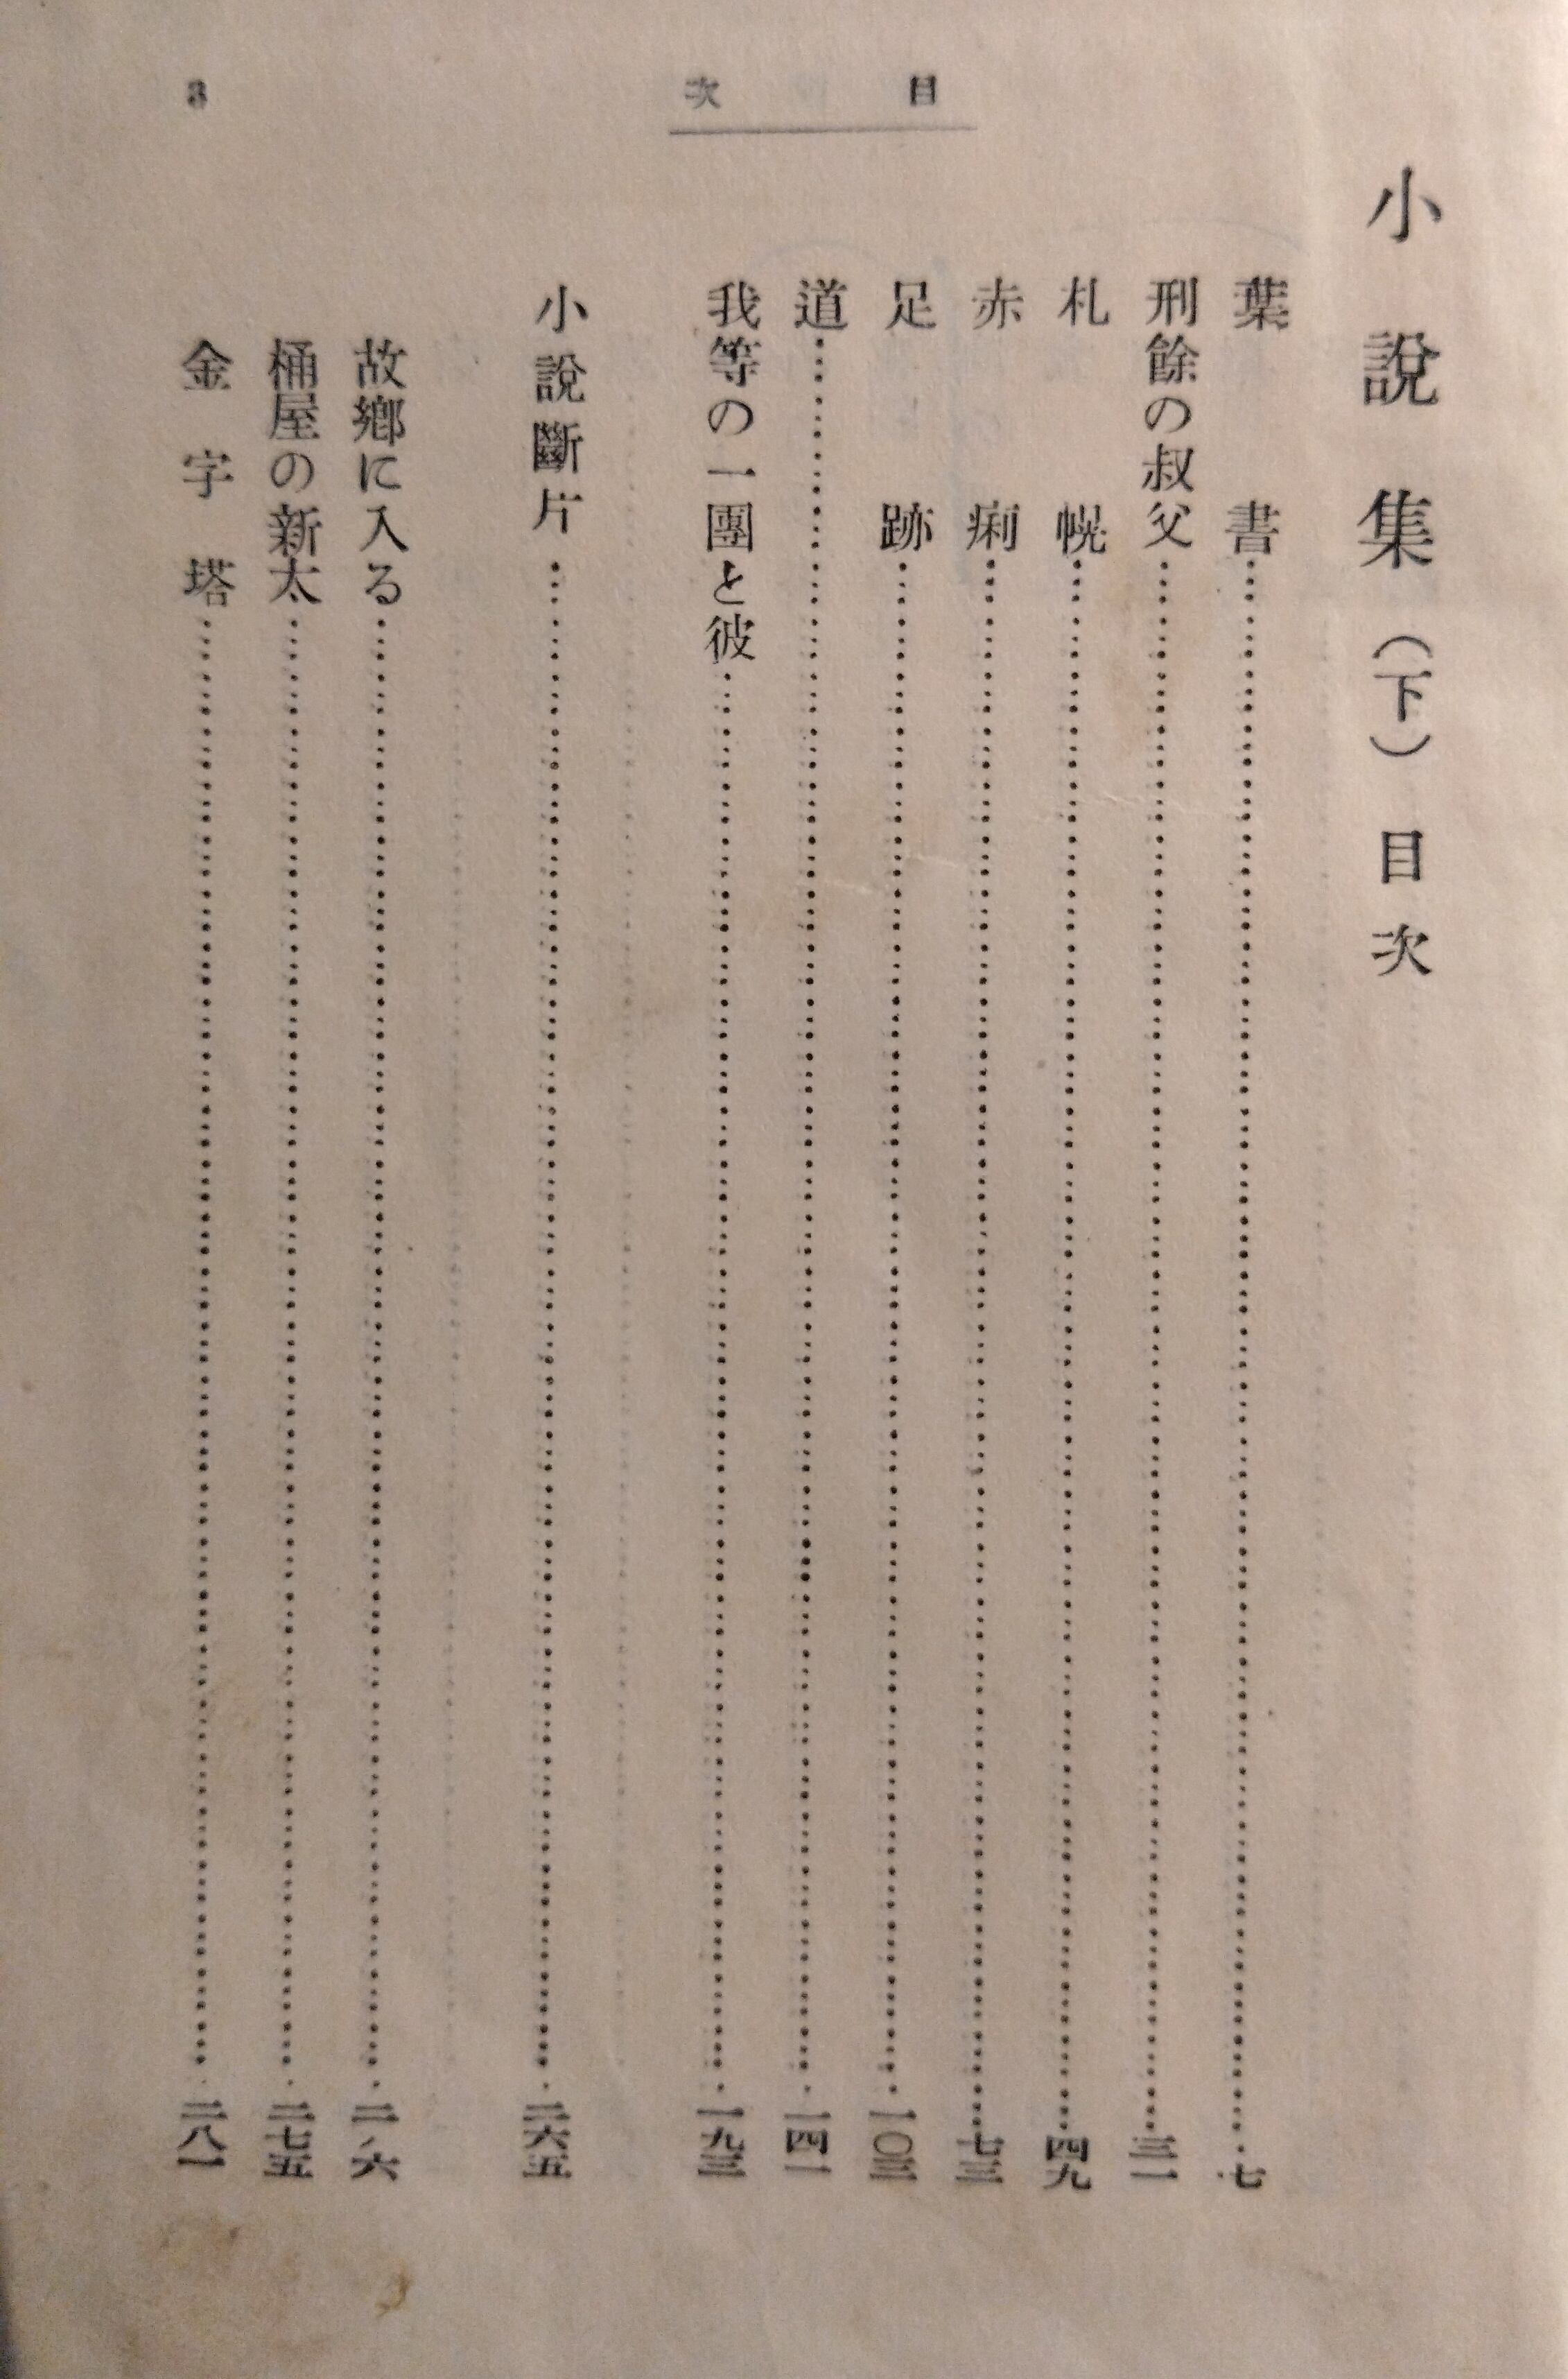 目次
3
小說集（下）目次
葉書……七
刑餘の叔父……三一
札幌……四九
赤痢……七三
足跡……一〇三
道……一四一
我等の一團と彼……一九三
小說斷片……二六五
故鄕に入る……
桶屋の新太……二七五
金字塔……二八一